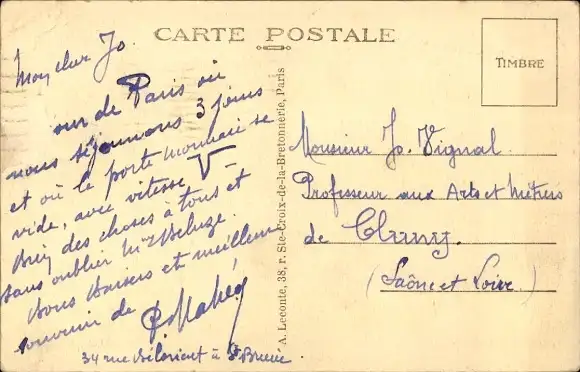 CARTE POSTALE
TIMBRE
Mon cher Jo.
de Paris où
nous séjournons 3 jours
et où le porte monnaie se
vide, avec vitesse V
Bien des choses à tous et
sans oublier Mme Beluze.
Bons baisers et meilleur
souvenir de
34 rue à St Brieuc
A. Leconte, 38, r. Ste-Croix-de-la-Bretonnerie, Paris
Monsieur Jo. Vignal
Professeur aux Arts et Métiers
de Cluny.
(Saône et Loire)